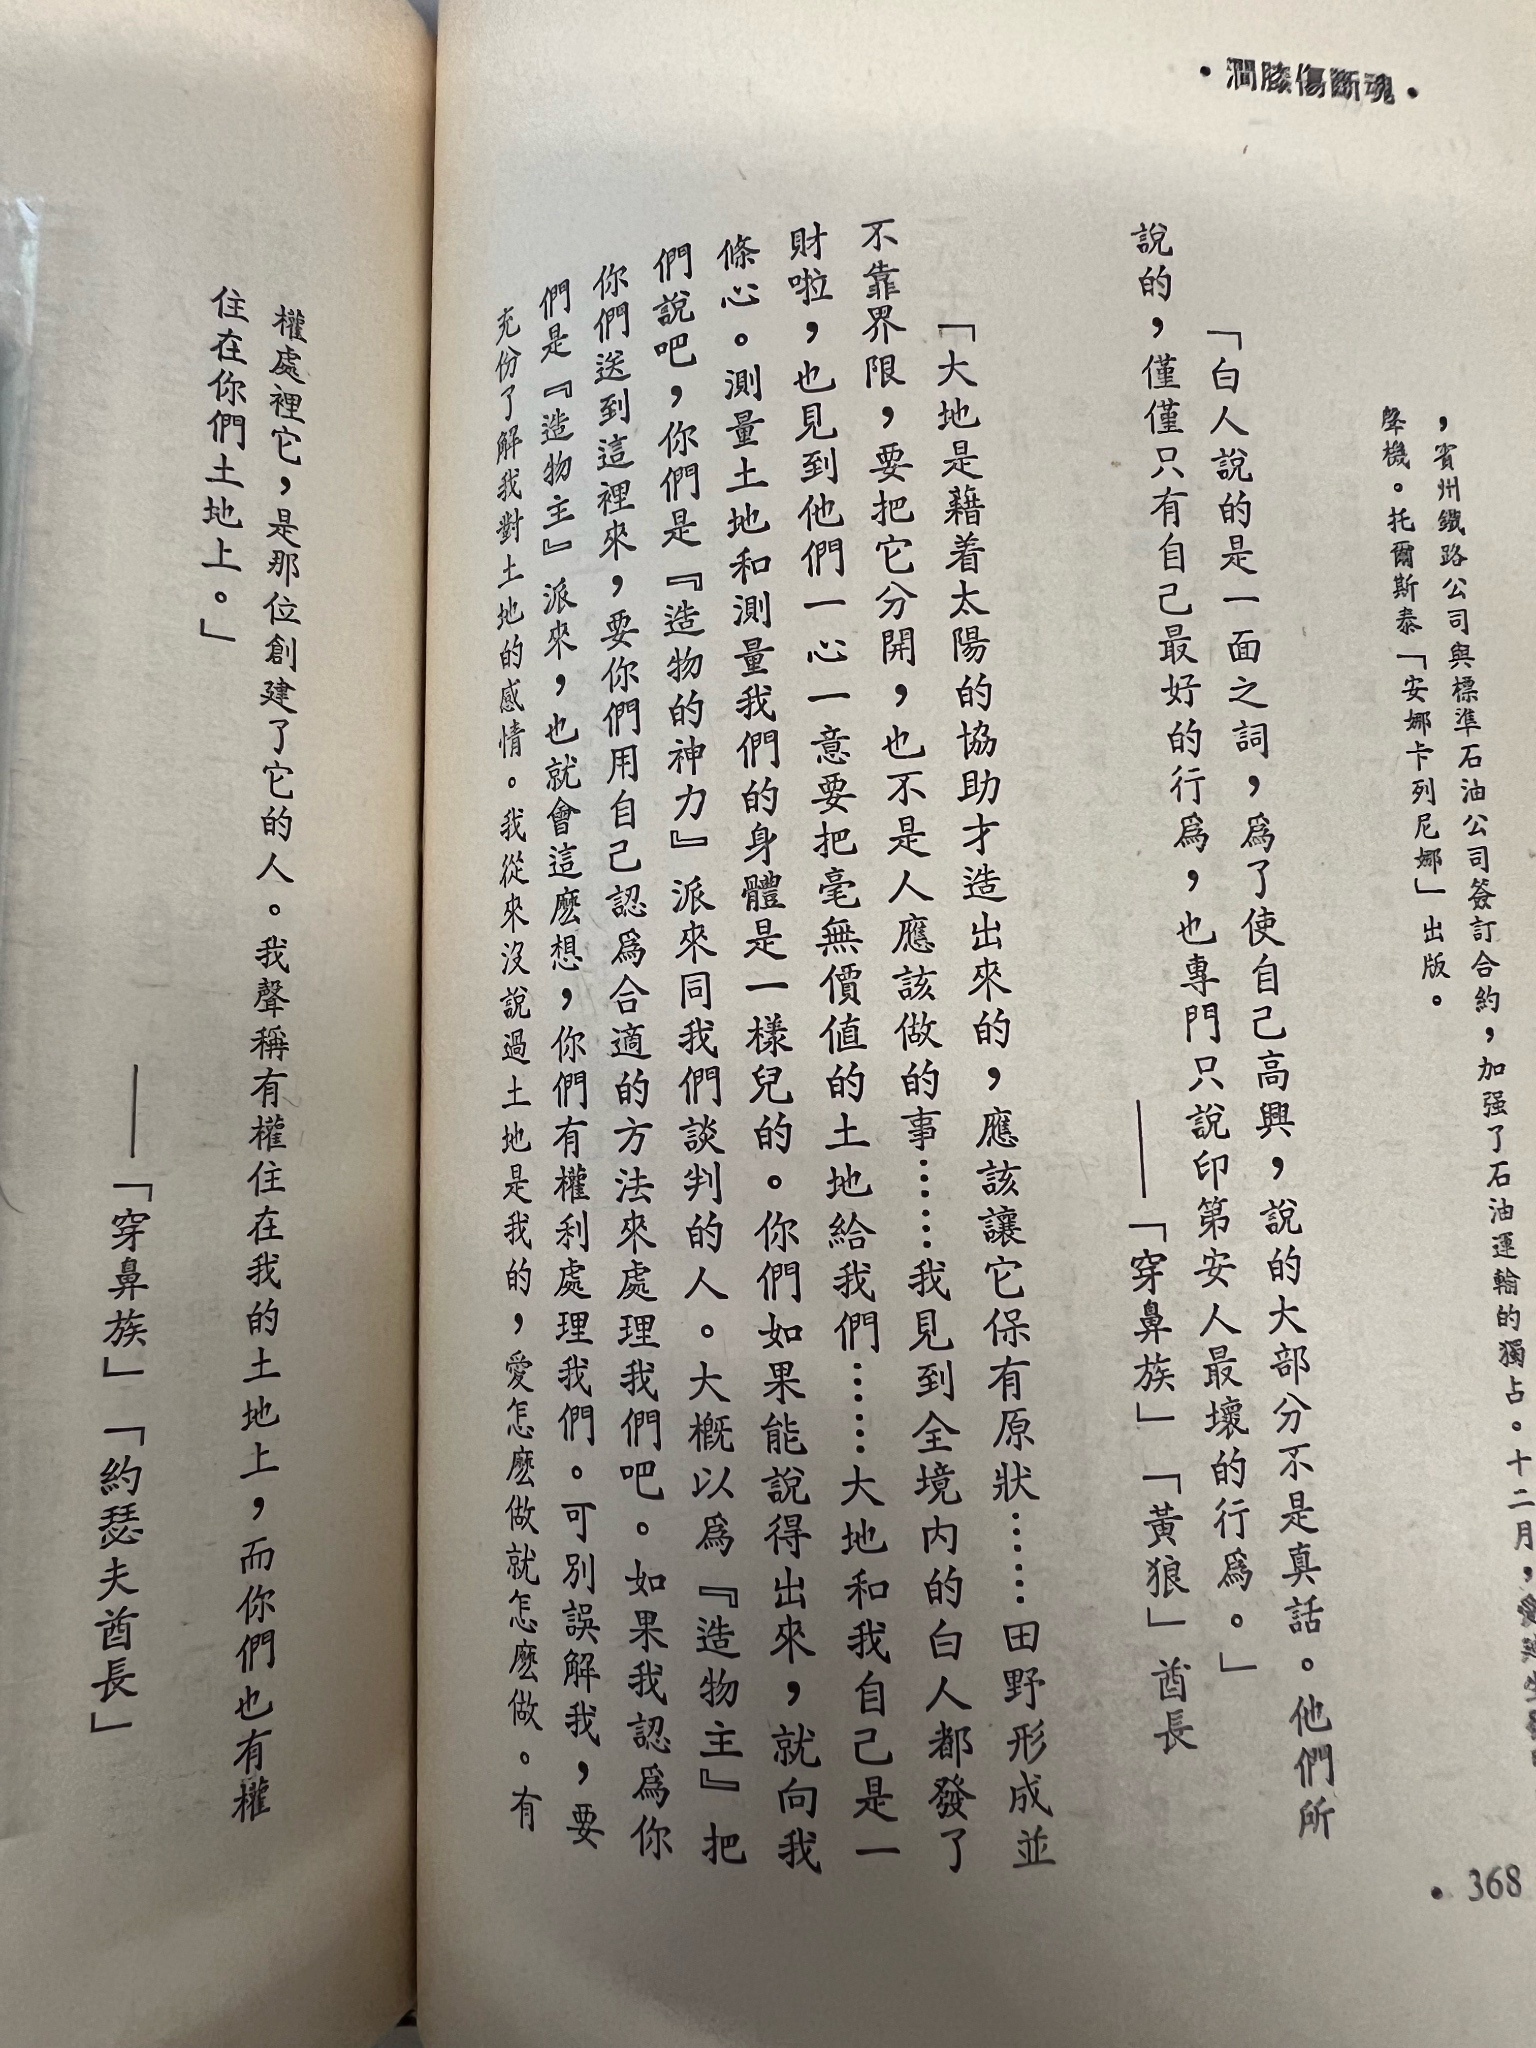 •魂斷傷膝澗•
，賓州鐵路公司與標準石油公司簽訂合約，加强了石油運輸的獨占。十二月，愛迪生發明
聲機。托爾斯泰「安娜卡列尼娜」出版。
「白人說的是一面之詞，爲了使自己高興，說的大部分不是真話。他們所
說的，僅僅只有自己最好的行爲，也專門只說印第安人最壞的行爲。」
——「穿鼻族」「黃狼」酋長
「大地是藉着太陽的協助才造出來的，應該讓它保有原狀……田野形成並
不靠界限，要把它分開，也不是人應該做的事……我見到全境內的白人都發了
財啦，也見到他們一心一意要把毫無價値的土地給我們……大地和我自己是一
條心。測量土地和測量我們的身體是一樣兒的。你們如果能說得出來，就向我
們說吧，你們是『造物的神力』派來同我們談判的人。大概以爲『造物主』把
你們送到這裡來，要你們用自己認爲合適的方法來處理我們吧。如果我認爲你
們是『造物主』派來，也就會這麽想，你們有權利處理我們。可別誤解我，要
充份了解我對土地的感情。我從來沒說過土地是我的，愛怎麽做就怎麽做。有
•368
權處裡它，是那位創建了它的人。我聲稱有權住在我的土地上，而你們也有權
住在你們土地上。」
——「穿鼻族」「約瑟夫酋長」